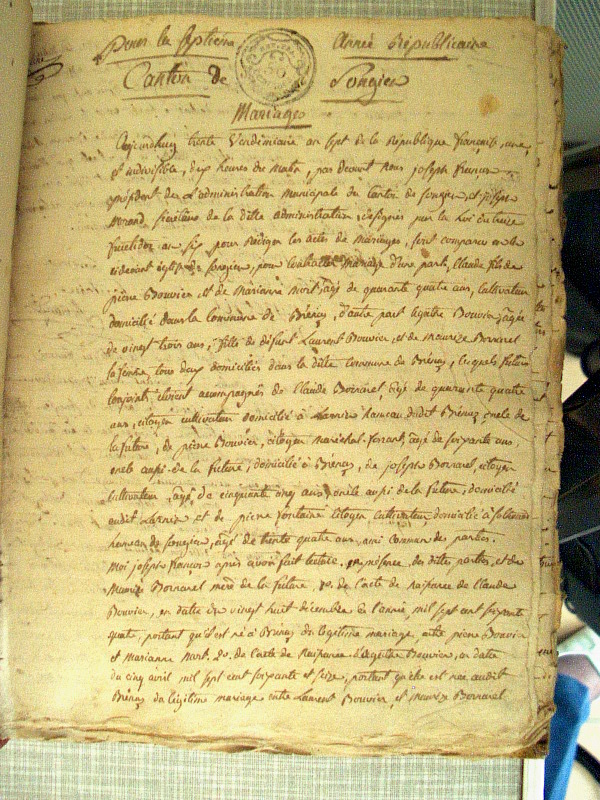 Pour la septieme Année Républicaine
Canton de Songieu
Mariages
Aujourdhuy trente Vendémiaire an sept de la République française, une
et indivisible, dix heures du matin, par devant nous joseph françon
président de l'administration municipale du Canton de Songieu, et joseph
Morand, secrétaire de la ditte administration, désignés par la Loi du treize
fructidor an six pour Rédiger les actes de Mariages, sont comparus en la
cidevant église de Songieu, pour Contracter Mariage d'une part, Claude fils de
pierre Bouvier et de Marianne Mort, agé de quarante quatre ans, cultivateur
domicilié dans la Commune de Brénaz, d'autre part Agathe Bouvier, agée
de vingt trois ans, fille de défunt Laurent Bouvier, et de Maurize Bornarel
sa femme, tous deux domiciliés dans la ditte commune de Brénaz, lesquels futurs
Conjoints étoient accompagnés de Claude Bornarel, agé de quarante quatre
ans, citoyen cultivateur domicilié à Larnin hameau dudit Brénaz, oncle de
la future, de pierre Bouvier, citoyen maréchal-ferrant, agé de soixante ans
oncle aussi de la future, domicilié à Brénaz, de joseph Bornarel, citoyen
cultivateur, agé de cinquante cinq ans, oncle aussi de la future, domicilié
audit Larnin et de pierre fontaine citoyen cultivateur, domicilié à
hameau de Songieu, agé de trente quatre ans, ami commun de parties.
Moi joseph françon après avoir fait lecture en présence des dittes parties, et de
Maurize Bornarel mere de la future, 1o. de l'acte de naissance de Claude
Bouvier, en datte du vingt huit décembre de l'année mil sept cent soixante
quatre, portant qu'il est né à Brénaz du légitime mariage, entre pierre Bouvier
et Marianne Mort. 2o. de l'acte de naissance d'Agathe Bouvier, en datte
du cinq avril mil sept cent soixante et seize, portant qu'elle est née audit
Brénaz du légitime mariage entre Laurent Bouvier, et Maurize Bornarel